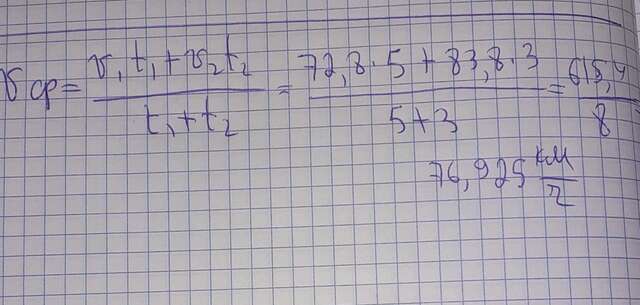 v ср = (v₁t₁ + v₂t₂) / (t₁ + t₂) = (72,8 · 5 + 83,8 · 3) / (5 + 3) = 615,4 / 8
76,925 км/ч